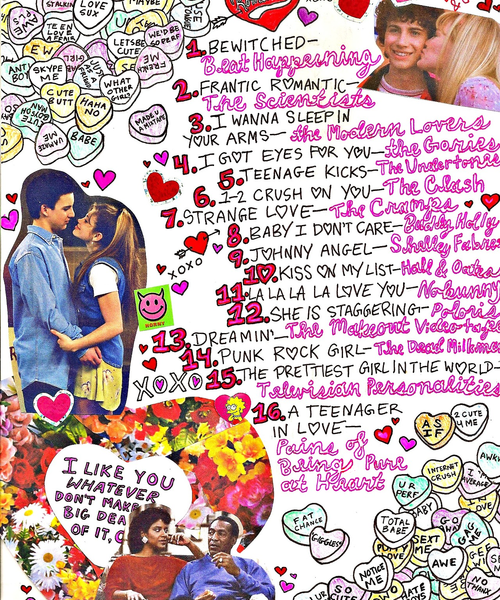 STALKIN
LOVE
SIX
MAYBE
AWE
TEEN
LOVE
AFFAIR
WE'D BE
SO PERF
EW
LETS BE
CUTE
SKYPE
ME
WHAT
OTHER
GIRL?
CUTE
BUTT
HAHA
NO
MADE U
A MIXTAPE
BABE
1. BEWITCHED—
Beat Happening
2. FRANTIC ROMANTIC—
The Scientists
3. I WANNA SLEEP IN
YOUR ARMS— the Modern Lovers
4. I GOT EYES FOR YOU— the Gories
5. TEENAGE KICKS— The Undertones
6. 1-2 CRUSH ON YOU— The Clash
7. STRANGE LOVE— The Cramps
8. BABY I DON'T CARE— Buddy Holly
9. JOHNNY ANGEL— Shelley Fabres
10. KISS ON MY LIST— Hall & Oates
11. LA LA LA LA LOVE YOU— Nobunny
12. SHE IS STAGGERING— Polaris
13. DREAMIN'— The Makeout Videotapes
14. PUNK ROCK GIRL— The Dead Milkmen
15. THE PRETTIEST GIRL IN THE WORLD—
Television Personalities
16. A TEENAGER
IN LOVE—
Pains of
Being Pure
at Heart
XOXO
HORNY
XOXO
I LIKE YOU
WHATEVER
DON'T MAKE
BIG DEA
OF IT,
AS
IF
2 CUTE
4 ME
INTERNET
CRUSH
AWK
UR
PERF
FAT
CHANCE
GIGGLES
TOTAL
BABE
SEXT
ME
AWE
NOTICE
ME
NO
THANX
SO
CUTE